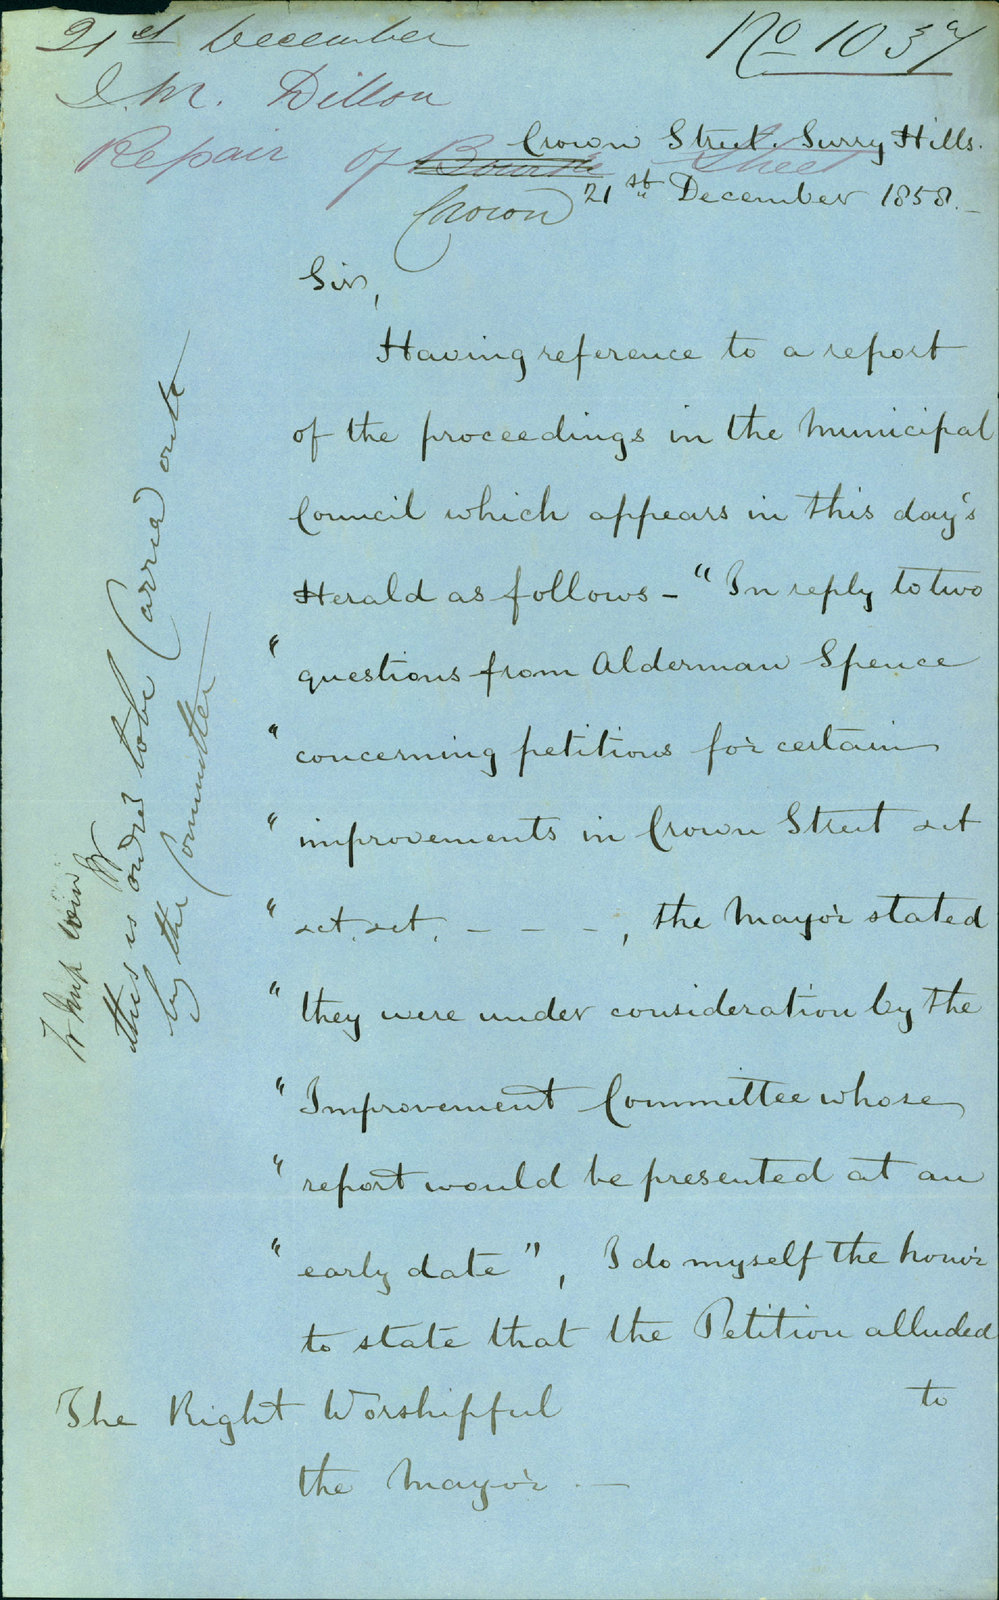 21st December
No 1037
J. M. Dillon
Repair of Bourke Street
Crown
Crown Street. Surry Hills.
21st December 1858.
Sir,
Having reference to a report
of the proceedings in the Municipal
Council which appears in this day's
Herald as follows - "In reply to two
"questions from Alderman Spence
"concerning petitions for certain
"improvements in Crown Street &ct
"&ct. &ct. - - - , the Mayor stated
"they were under consideration by the
"Improvement Committee whose
"report would be presented at an
"early date", I do myself the honor
to state that the Petition alluded
to
The Right Worshipful
the Mayor. -
this is ordred to be Carried oute
by the Committee